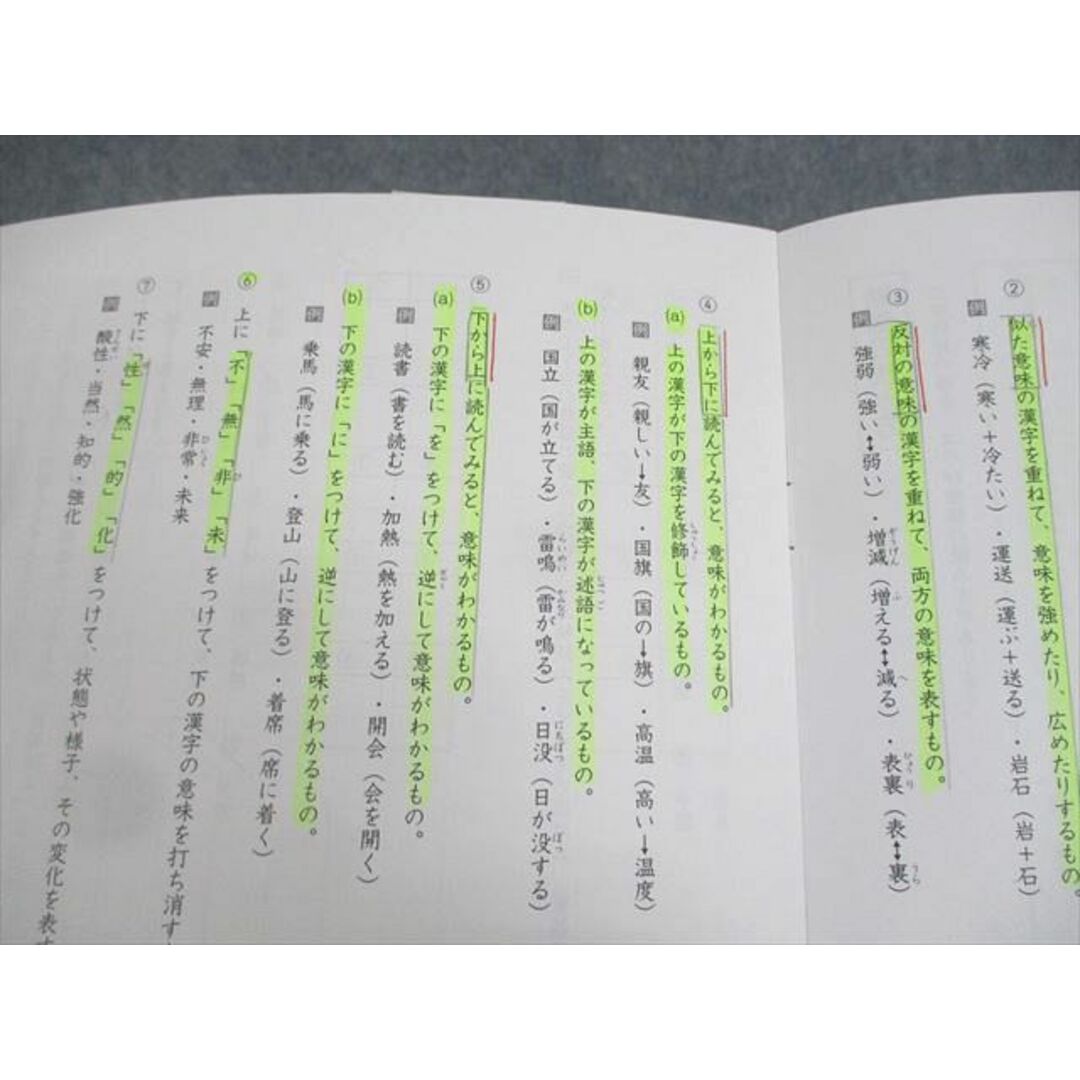 ②
似た意味の漢字を重ねて、意味を強めたり、広めたりするもの。
例 寒冷（寒い＋冷たい）・運送（運ぶ＋送る）・岩石（岩＋石）
③
反対の意味の漢字を重ねて、両方の意味を表すもの。
例 強弱（強い↔弱い）・増減（増える↔減る）・表裏（表↔裏）
④
上から下に読んでみると、意味がわかるもの。
(a) 上の漢字が下の漢字を修飾しているもの。
例 親友（親しい→友）・国旗（国の→旗）・高温（高い→温度）
(b) 上の漢字が主語、下の漢字が述語になっているもの。
例 国立（国が立てる）・雷鳴（雷が鳴る）・日没（日が没する）
⑤
下から上に読んでみると、意味がわかるもの。
(a) 下の漢字に「を」をつけて、逆にして意味がわかるもの。
例 読書（書を読む）・加熱（熱を加える）・開会（会を開く）
(b) 下の漢字に「に」をつけて、逆にして意味がわかるもの。
例 乗馬（馬に乗る）・登山（山に登る）・着席（席に着く）
⑥
上に「不」「無」「非」「未」をつけて、下の漢字の意味を打ち消す
例 不安・無理・非常・未来
⑦
下に「性」「然」「的」「化」をつけて、状態や様子、その変化を表す
例 酸性・当然・知的・強化